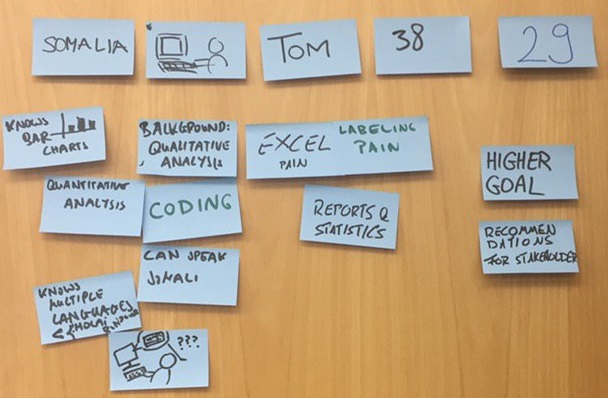 SOMALIA
TOM
38
29
KNOWS
BAR
CHARTS
BACKGROUND:
QUALITATIVE
ANALYSIS
EXCEL
PAIN
LABELING
PAIN
HIGHER
GOAL
QUANTITATIVE
ANALYSIS
CODING
REPORTS &
STATISTICS
RECOMMEN
DATIONS
FOR STAKEHOLDER
CAN SPEAK
SOMALI
KNOWS
MULTIPLE
LANGUAGES
???